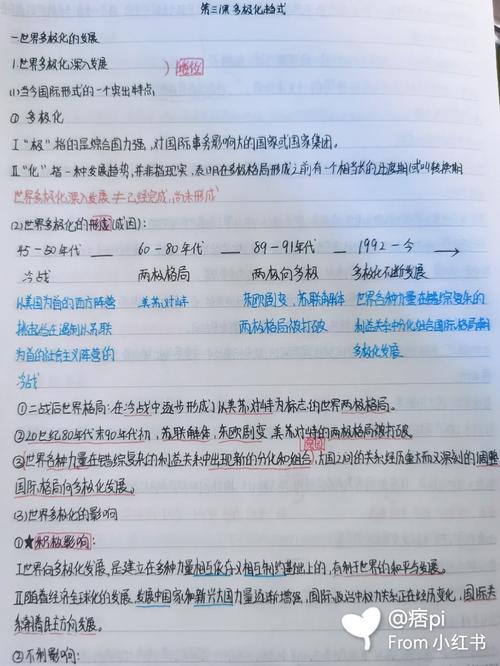 第三课 多极化趋势
一.世界多极化的发展
1.世界多极化深入发展 地位
(1)当今国际形式的一个突出特点
① 多极化
Ⅰ"极"指的是综合国力强,对国际事务影响大的国家或国家集团。
Ⅱ"化"指一种发展趋势,并非指现实,表明在多极格局形成之前有一个相当长的过渡期(或叫转换期
世界多极化深入发展≠已经完成,尚未形成
(2)世界多极化的形成(成因):
45-50年代 60-80年代 89-91年代 1992-今
冷战 两极格局 两极向多极 多极化不断发展
以美国为首的西方阵营 美苏对峙 东欧剧变、苏联解体 世界各种力量在错综复杂的
挑起旨在遏制以苏联 两极格局被打破 利益关系中分化组合国际格局朝
为首的社会主义阵营的 多极化发展
冷战
①二战后世界格局:在冷战中逐步形成了以美苏对峙为标志的世界两极格局。
②20世纪80年代末90年代初,苏联解体,东欧剧变,美苏对峙的两极格局被打破。
③世界各种力量在错综复杂的利益关系中出现新的分化和组合,大国之间的关系经历重大而又深刻的调整
国际格局向多极化发展。
(3)世界多极化的影响
①★积极影响:
Ⅰ世界向多极化发展,是建立在多种力量相互依存又相互制约基础上的,有利于世界的和平与发展。
Ⅱ随着经济全球化的发展,发展中国家和新兴大国力量逐渐增强,国际政治中权力关系正在经历变化,国际关
系朝着民主方向发展。
②不利影响:
@痞pi
From 小红书